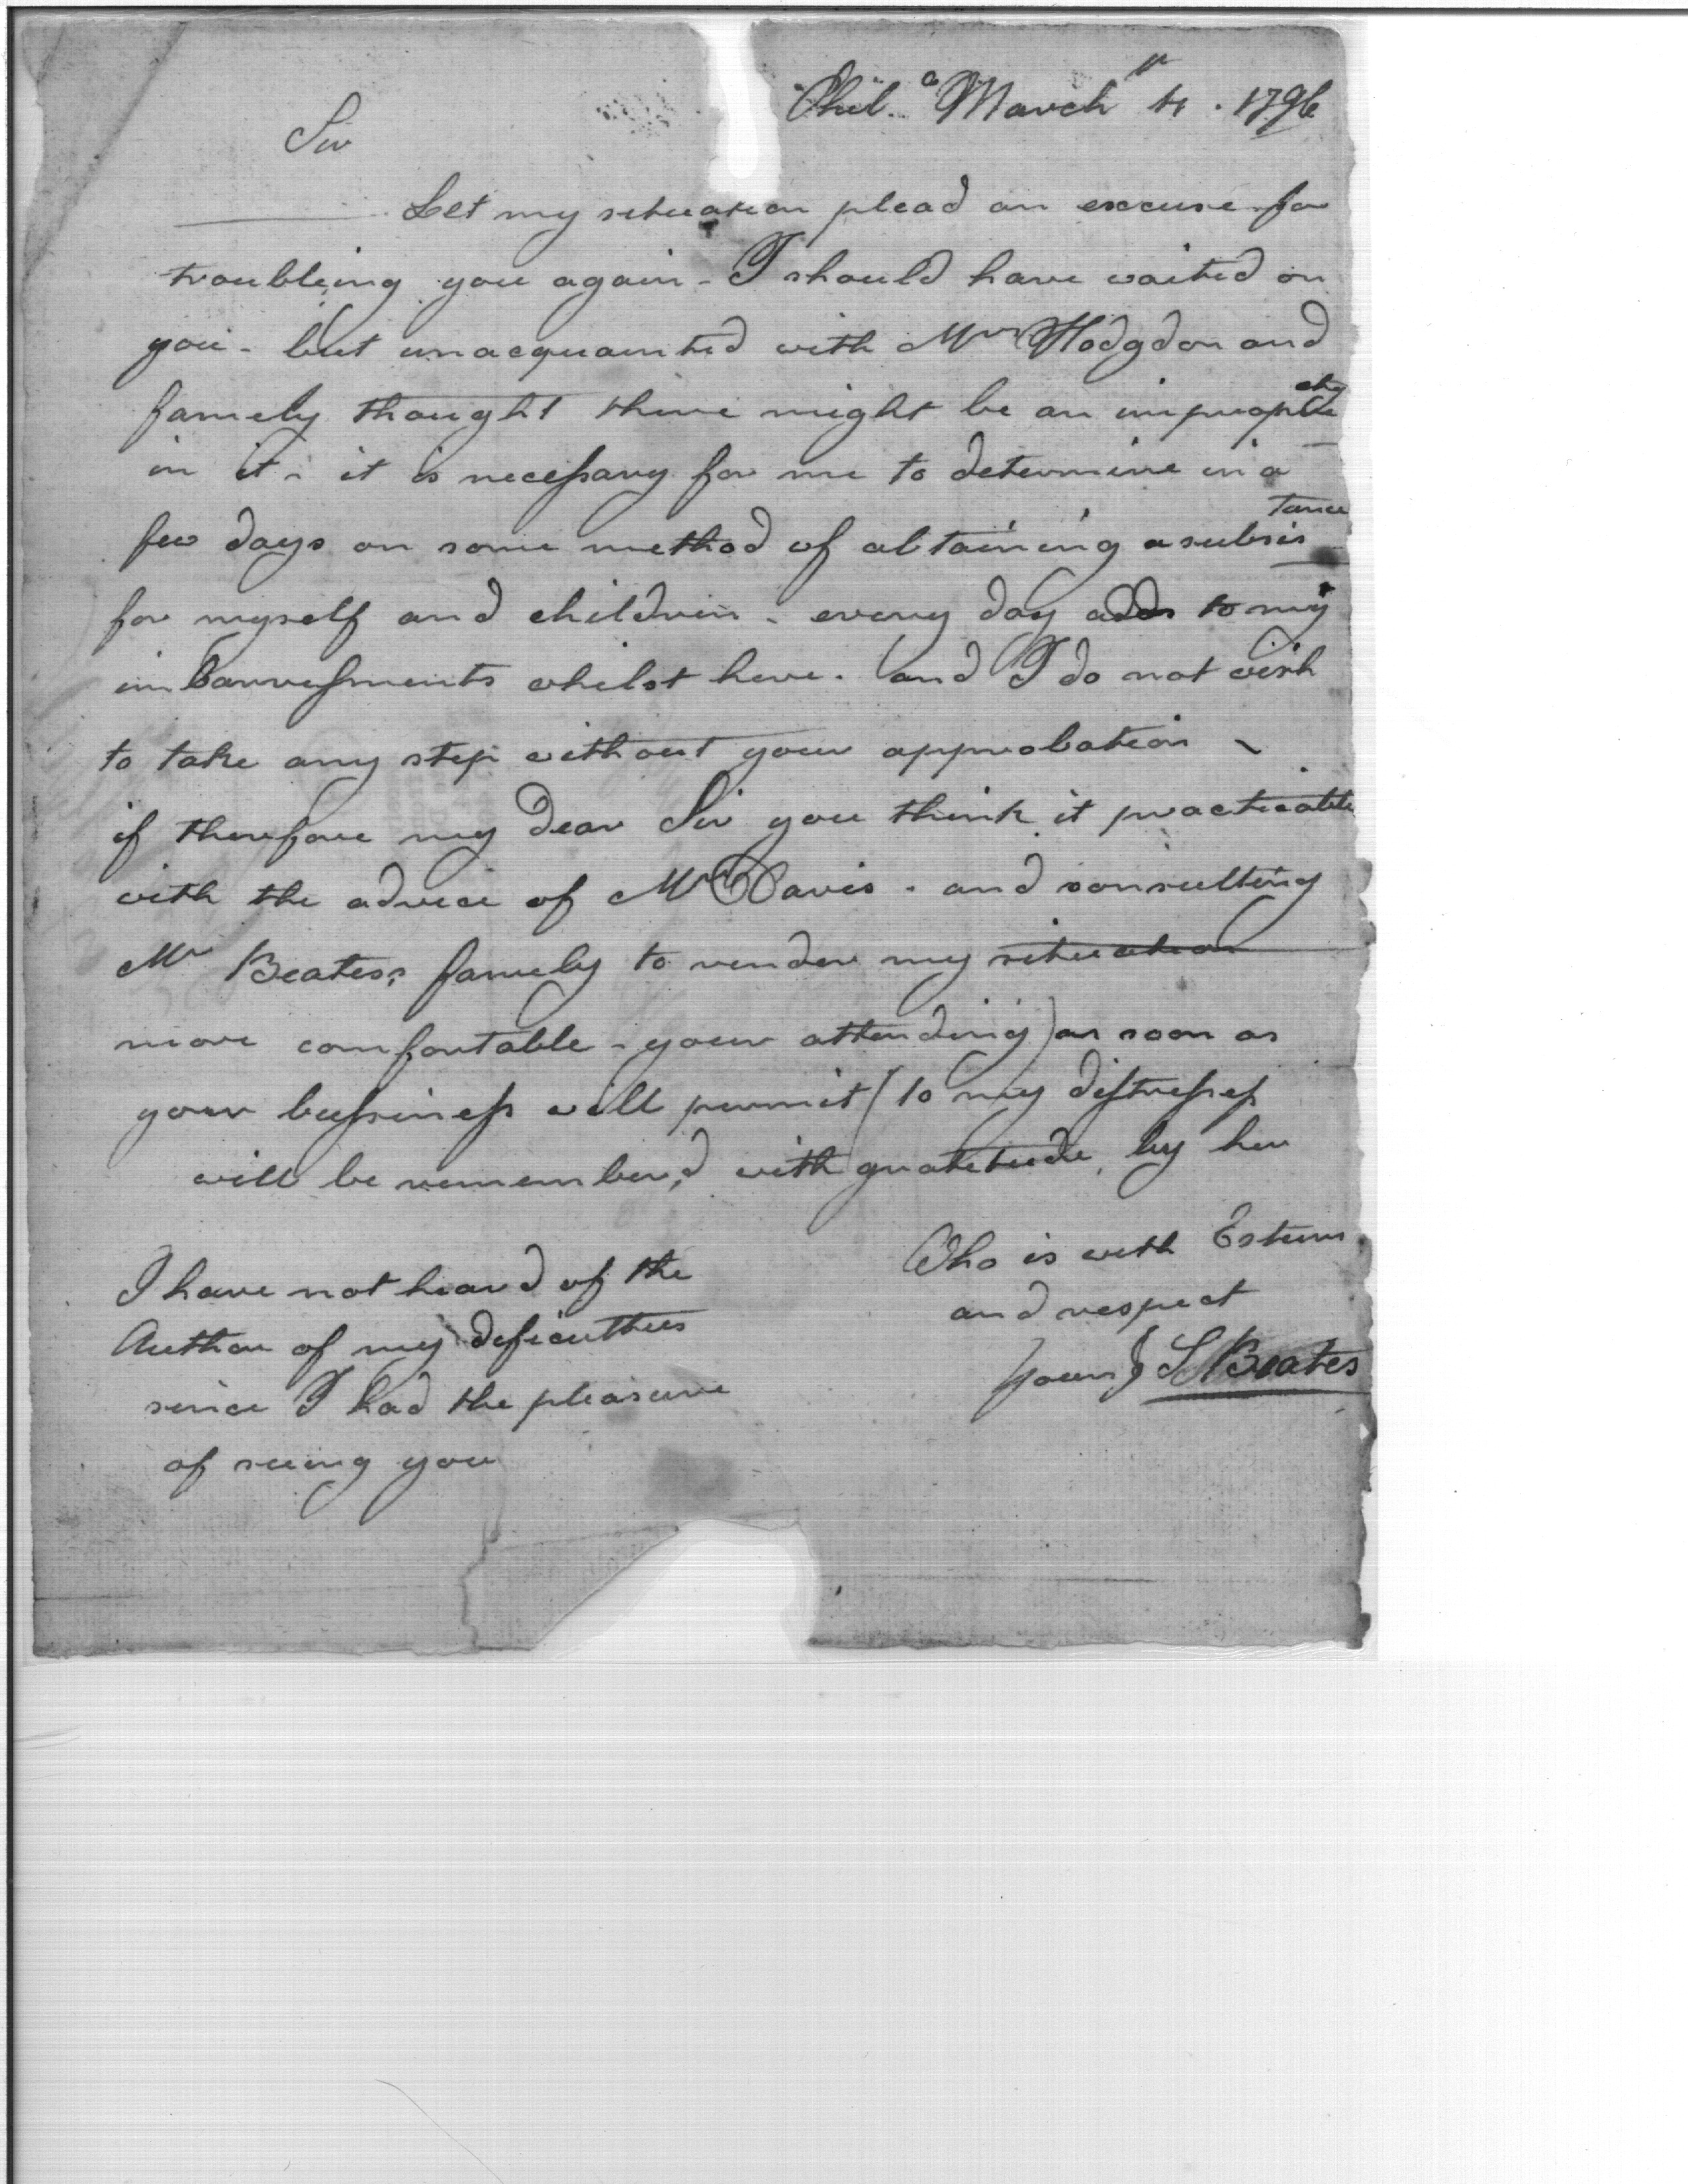 Phila. March 4th. 1796
Sir
Let my situation plead an excuse for
troubleing you again - I should have waited on
you - but unacquainted with Mrs Hodgdon and
famely thought there might be an impropriety
in it - it is necessary for me to determine in a
few days on some method of obtaining a subsistance
for myself and children - every day adds to my
imbarressments whilst here. and I do not wish
to take any step without your approbation -
if therefore my Dear Sir you think it practicable
with the advice of Mr Davis - and consulting
Mr Beates,s famely to render my situation
more comfortable - your attending) as soon as
your bussiness will permit ( to my distresses
will be remember,d with gratetude, by her
Who is with Esteem
and respect
yours S Beates
I have not heard of the
Author of my deficultees
since I had the pleasure
of seeing you